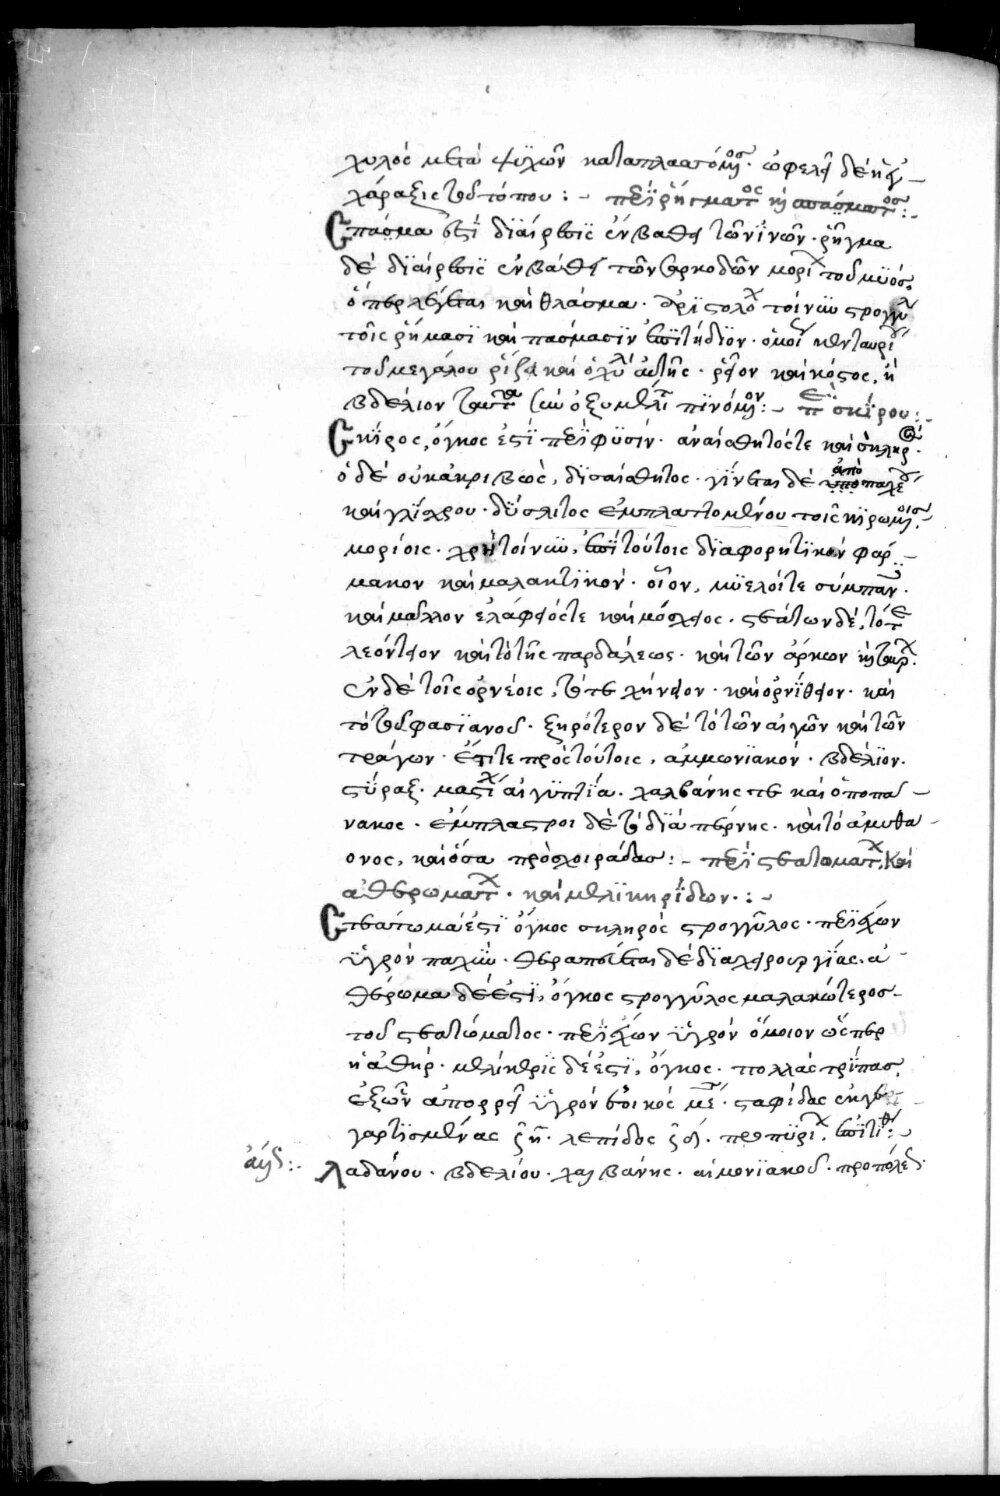 χυλός μετὰ ψιχῶν καταπλασσόμενος· ὠφελεῖ δὲ ἡ ἐγ-
χάραξις τοῦ τόπου :- περὶ ῥήγματος καὶ σπάσματος :-
Σπάσμα ἐστὶ διαίρεσις ἐν βάθει τῶν ἰνῶν· ῥῆγμα
δὲ διαίρεσις ἐν βάθει τῶν σαρκοδῶν μορίων τοῦ μυός,
ὅπερ λέγεται καὶ θλάσμα· ἀριστολοχία τοίνυν στρογγύλη
τοῖς ῥήμασι καὶ σπάσμασιν ἐπιτήδιον· ὁμοίως κενταυρίου
τοῦ μεγάλου ῥίζα καὶ ὁ χυλὸς αὐτῆς· ῥέον καὶ κόστος, ἢ
βδέλιον ταῦτα σὺν ὀξυμέλιτι πινόμενον :- περὶ σκίρου :-
Σκῖρος, ὄγκος ἐστὶ περὶ φύσιν· ἀναίσθητός τε καὶ σκληρός·
ὁ δὲ οὐκ ἀκριβὼς, δισαίσθητος· γίνεται δὲ ἀπὸ παχέος
καὶ γλίσχρου· δύσλιτος ἐμπλαττομένου τοῖς πηρωμένοις
μορίοις· χρὴ τοίνυν, ἐπὶ τούτοις διαφορητικὸν φάρ-
μακον καὶ μαλακτικόν· οἷον, μυελοί τε σύμπαντες·
καὶ μᾶλλον ἐλάφειός τε καὶ μόσχειος· στεάτων δὲ, τό τε
λεόντειον καὶ τὸ τῆς παρδάλεως· καὶ τῶν ἄρκων καὶ ταύρων·
ἐν δὲ τοῖς ὀρνέοις, τό τε χήνειον· καὶ ὀρνίθειον· καὶ
τὸ τοῦ φασιανοῦ· ξηρότερον δὲ τὸ τῶν αἰγῶν καὶ τῶν
τράγων· ἔτι τε πρὸς τούτοις, ἀμμωνιακόν· βδέλιον·
στύραξ· μαστίχη αἰγυπτία· χαλβάνης τε καὶ ὀποπά-
νακος· ἔμπλαστροι δὲ τὸ διὰ πτέρνης· καὶ τὸ ἀμυθά-
ονος, καὶ ὅσα πρὸς χοιράδας :- περὶ στεατωμάτων, καὶ
ἀθερωμάτων· καὶ μελικηρίδων· :-
Στεάτωμά ἐστι ὄγκος σκληρὸς στρογγύλος· περιέχων
ὑγρὸν παχύ· θεραπεύεται δὲ διὰ χειρουργίας. ἀ-
θέρωμα δέ ἐστι, ὄγκος στρογγύλος μαλακώτερος
τοῦ στεατώματος· περιέχων ὑγρὸν ὅμοιον ὥσπερ
ἡ ἀθήρ· μελίκηρις δέ ἐστι, ὄγκος· πολλὰς τρύπας,
ἐξ ὧν ἀπορρεῖ ὑγρὸν ἐοικὸς μέλιτι· σταφίδας ἐκγε-
γαρτισμένας
Λαδάνου· βδελίου· χαλβάνης· ἀμονιακοῦ· προπόλεως